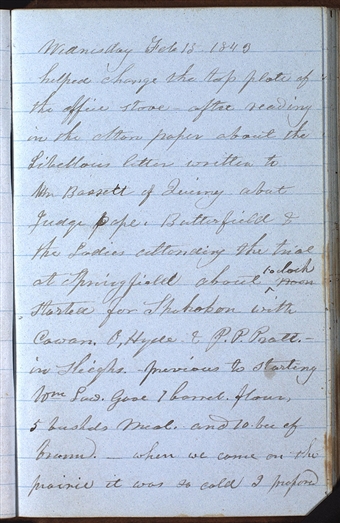 Wednesday Feb 15 1843
helped change the top plate of
the office stove - after reading
in the Alton paper about the
Libellous letter written to
Wm Bassett of Quincy about
Judge Pope. Butterfield &
the Ladies attending the trial
at Springfield about o clock
Started for Shokokon with
Cowan. O, Hyde. & P. P. Pratt. -
in Sleighs. - previous to starting
Wm Law. Gave 1 barrel. flour,
5 bushels Meal. and 10 bu of
brann. - when we came on the
prairie it was so cold I proposed